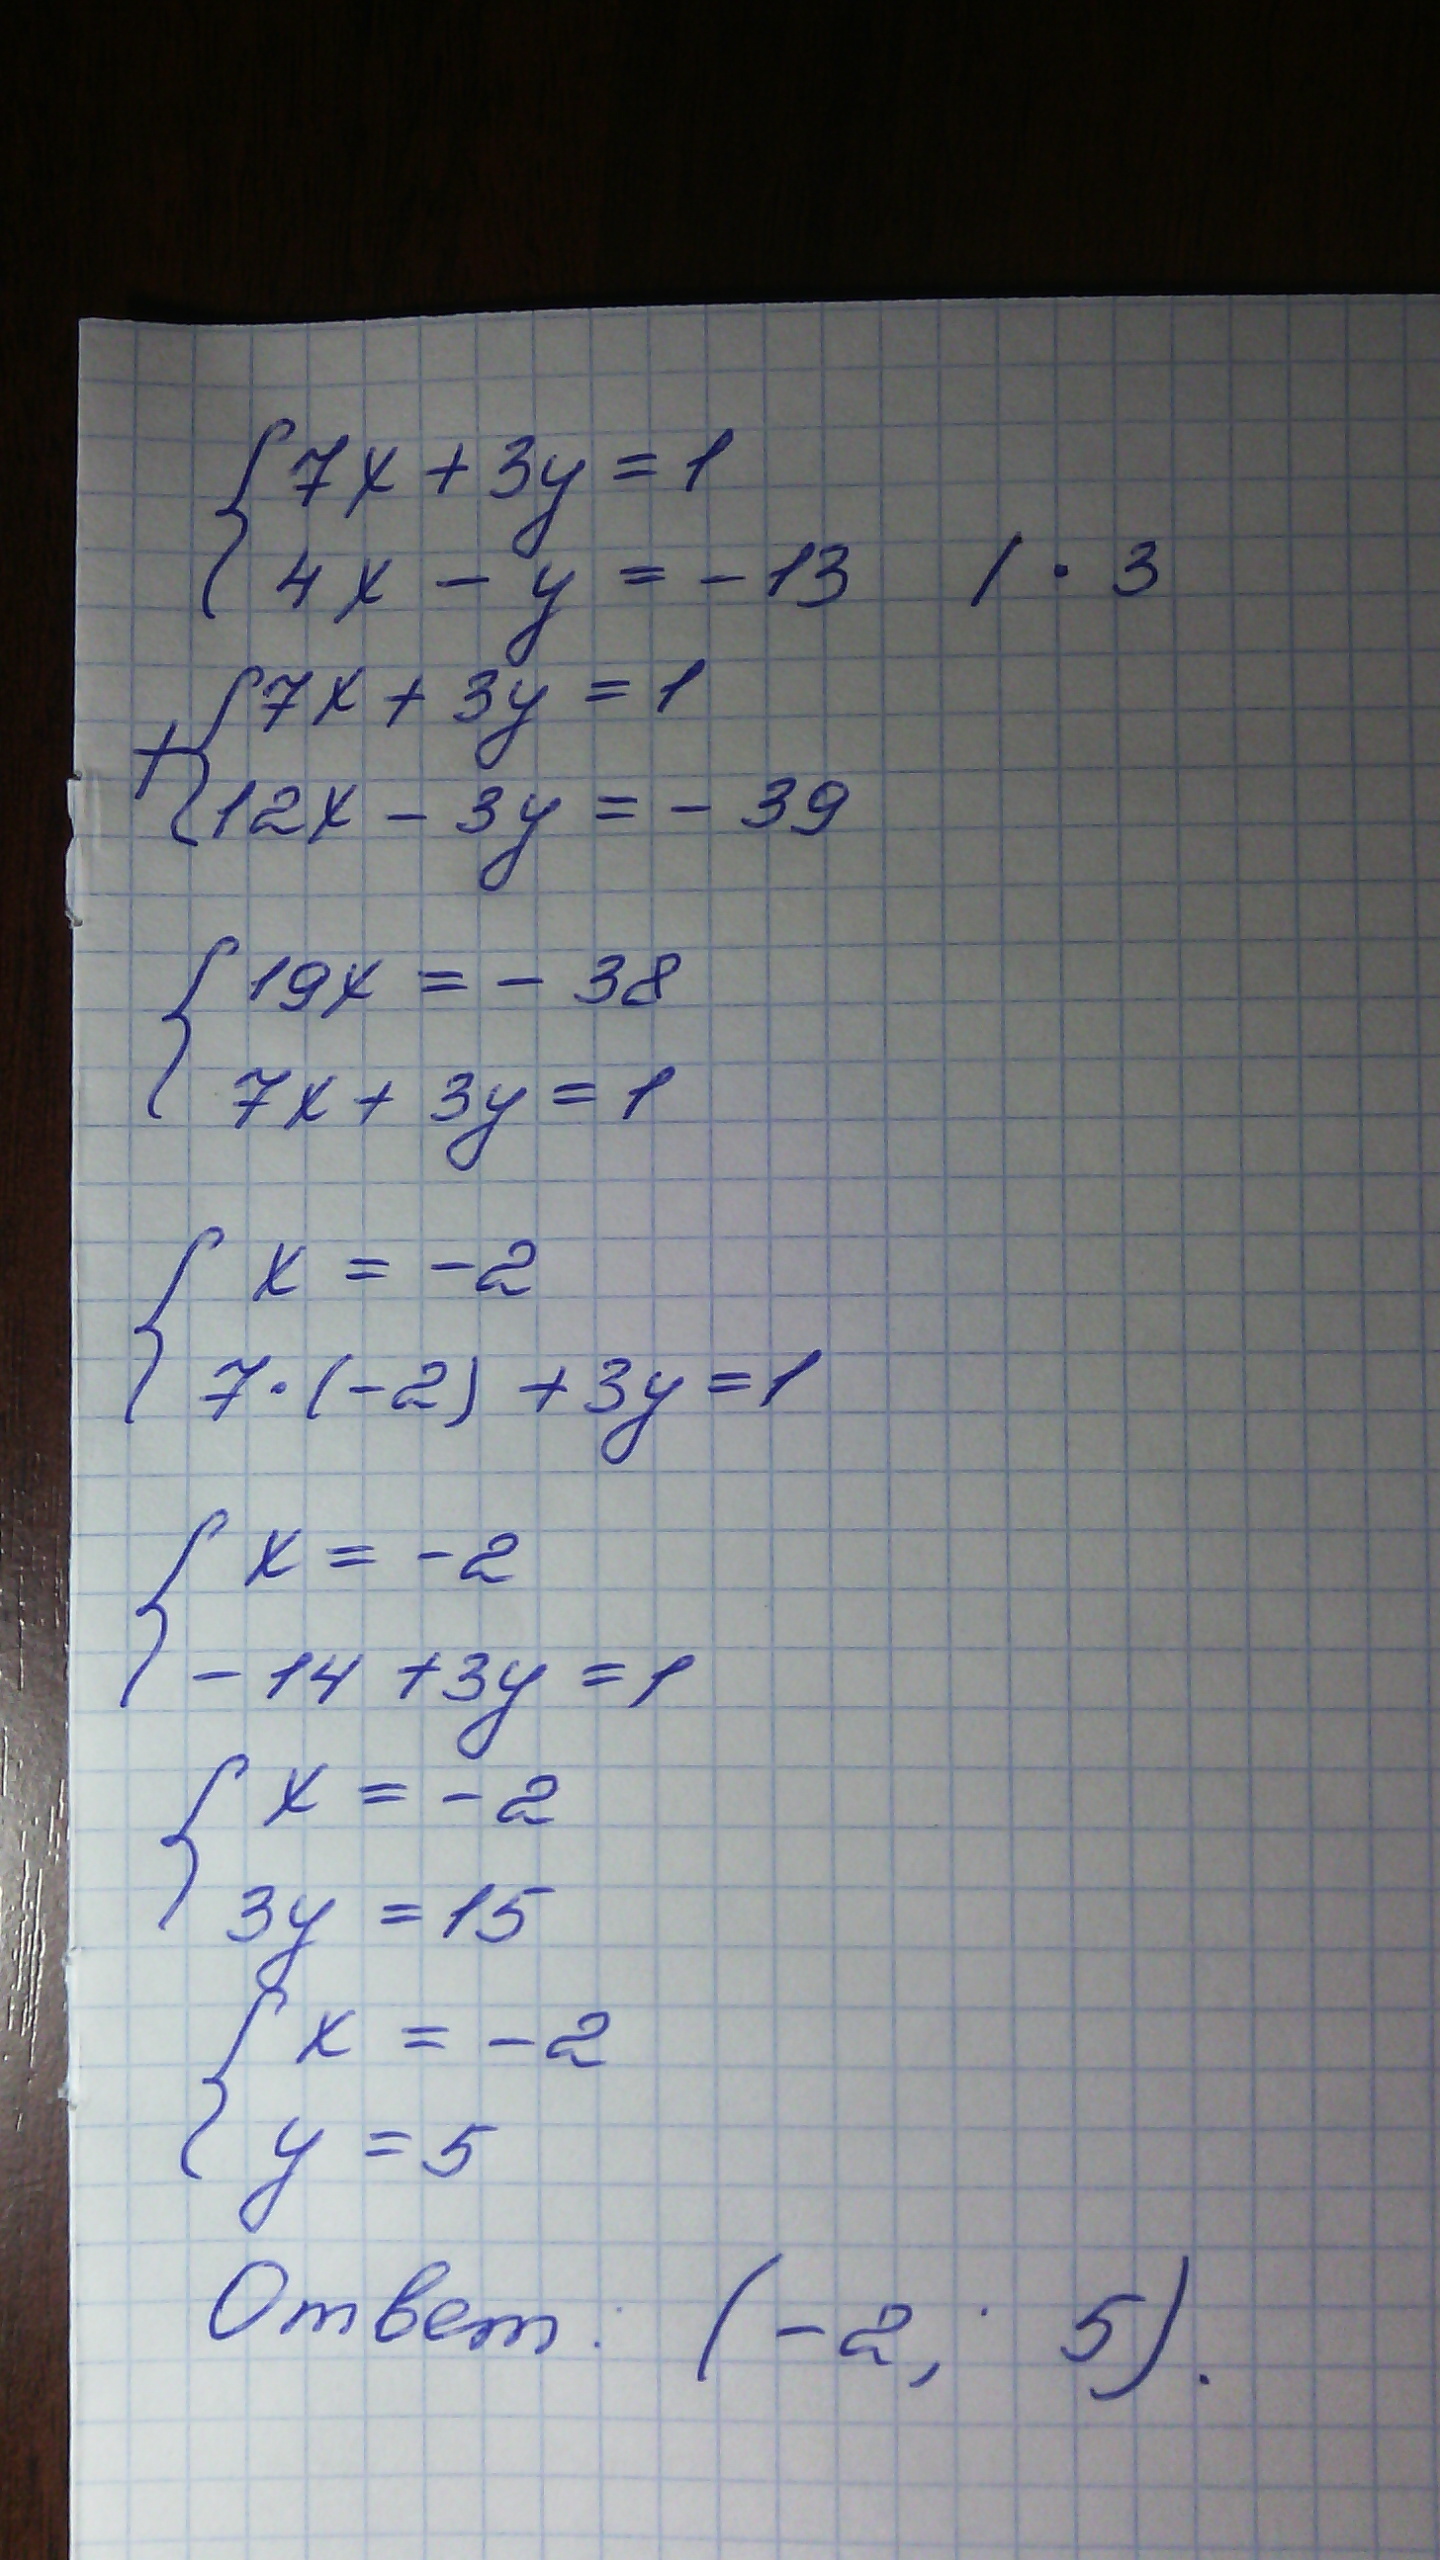 { 7x + 3y = 1
4x - y = -13 / · 3
+ { 7x + 3y = 1
12x - 3y = - 39
{ 19x = - 38
7x + 3y = 1
{ x = -2
7·(-2) + 3y = 1
{ x = -2
- 14 + 3y = 1
{ x = -2
3y = 15
{ x = -2
y = 5
Ответ: (-2; 5).